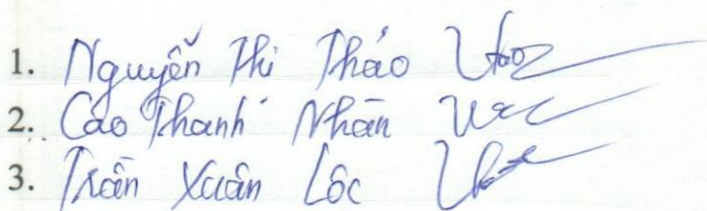 1. Nguyễn Thi Thảo
2. Cao Thanh Nhãn
3. Trần Xuân Lôc